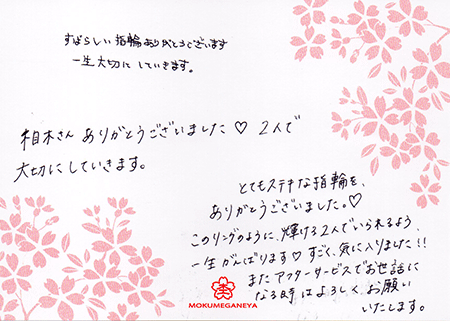 すばらしい指輪ありがとうございます
一生大切にしていきます。
相木さん ありがとうございました♡ 2人で
大切にしていきます。
とてもステキな指輪を、
ありがとうございました。♡
このリングのように、輝ける2人でいられるよう、
一生がんばります♡ すごく、気に入りました!!
またアフターサービスでお世話に
なる時はよろしくお願い
いたします。
MOKUMEGANEYA